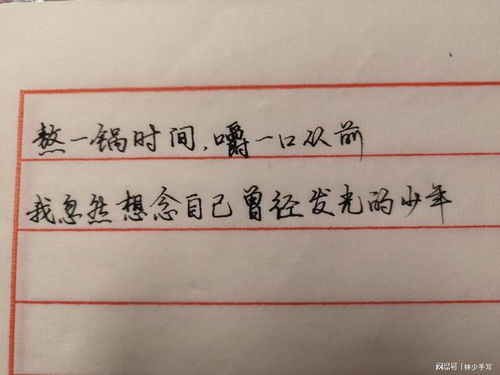 熬一锅时间，嚼一口从前
我忽然想念自己曾经发光的少年
网易号 | 林少手写